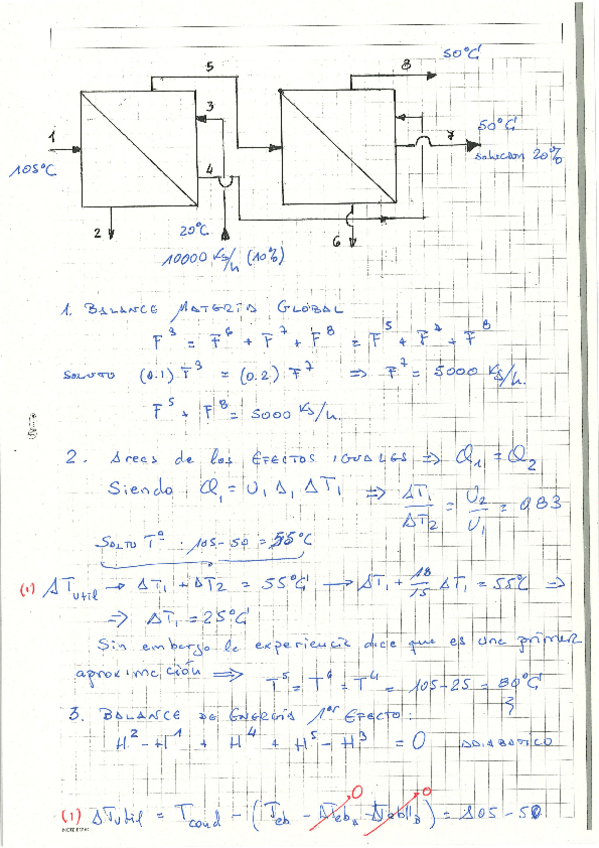 50°C
5
8
1
3
50°C
7
105°C
4
solucion 20%
2
20°C
6
10000 Kg/h (10%)
1. BALANCE MATERIA GLOBAL
F³ = F⁶ + F⁷ + F⁸ = F⁵ + F⁷ + F⁸
SOLUTO (0.1) F³ = (0.2) F⁷ ⇒ F⁷ = 5000 Kg/h.
F⁵ + F⁸ = 5000 Kg/h.
2. Areas de los EFECTOS IGUALES ⇒ Q₁ = Q₂
Siendo Q₁ = U₁ A₁ ΔT₁ ⇒ ΔT₁/ΔT₂ = U₂/U₁ = 0.83
SALTO Tª 105-50 = 55°C
(1) ΔTutil → ΔT₁ + ΔT₂ = 55°C → ΔT₁ + 18/15 ΔT₁ = 55°C ⇒
⇒ ΔT₁ = 25°C
Sin embargo la experiencia dice que es una primer
aproximación ⇒ T⁵ = T⁶ = T⁴ = 105-25 = 80°C
3. BALANCE DE ENERGÍA 1er EFECTO:
H² - H¹ + H⁴ + H⁵ - H³ = 0 ADIABATICO
(1) ΔTutil = Tcond - (Teb - ΔTebA - ΔTebB) = 105 - 50
0
0